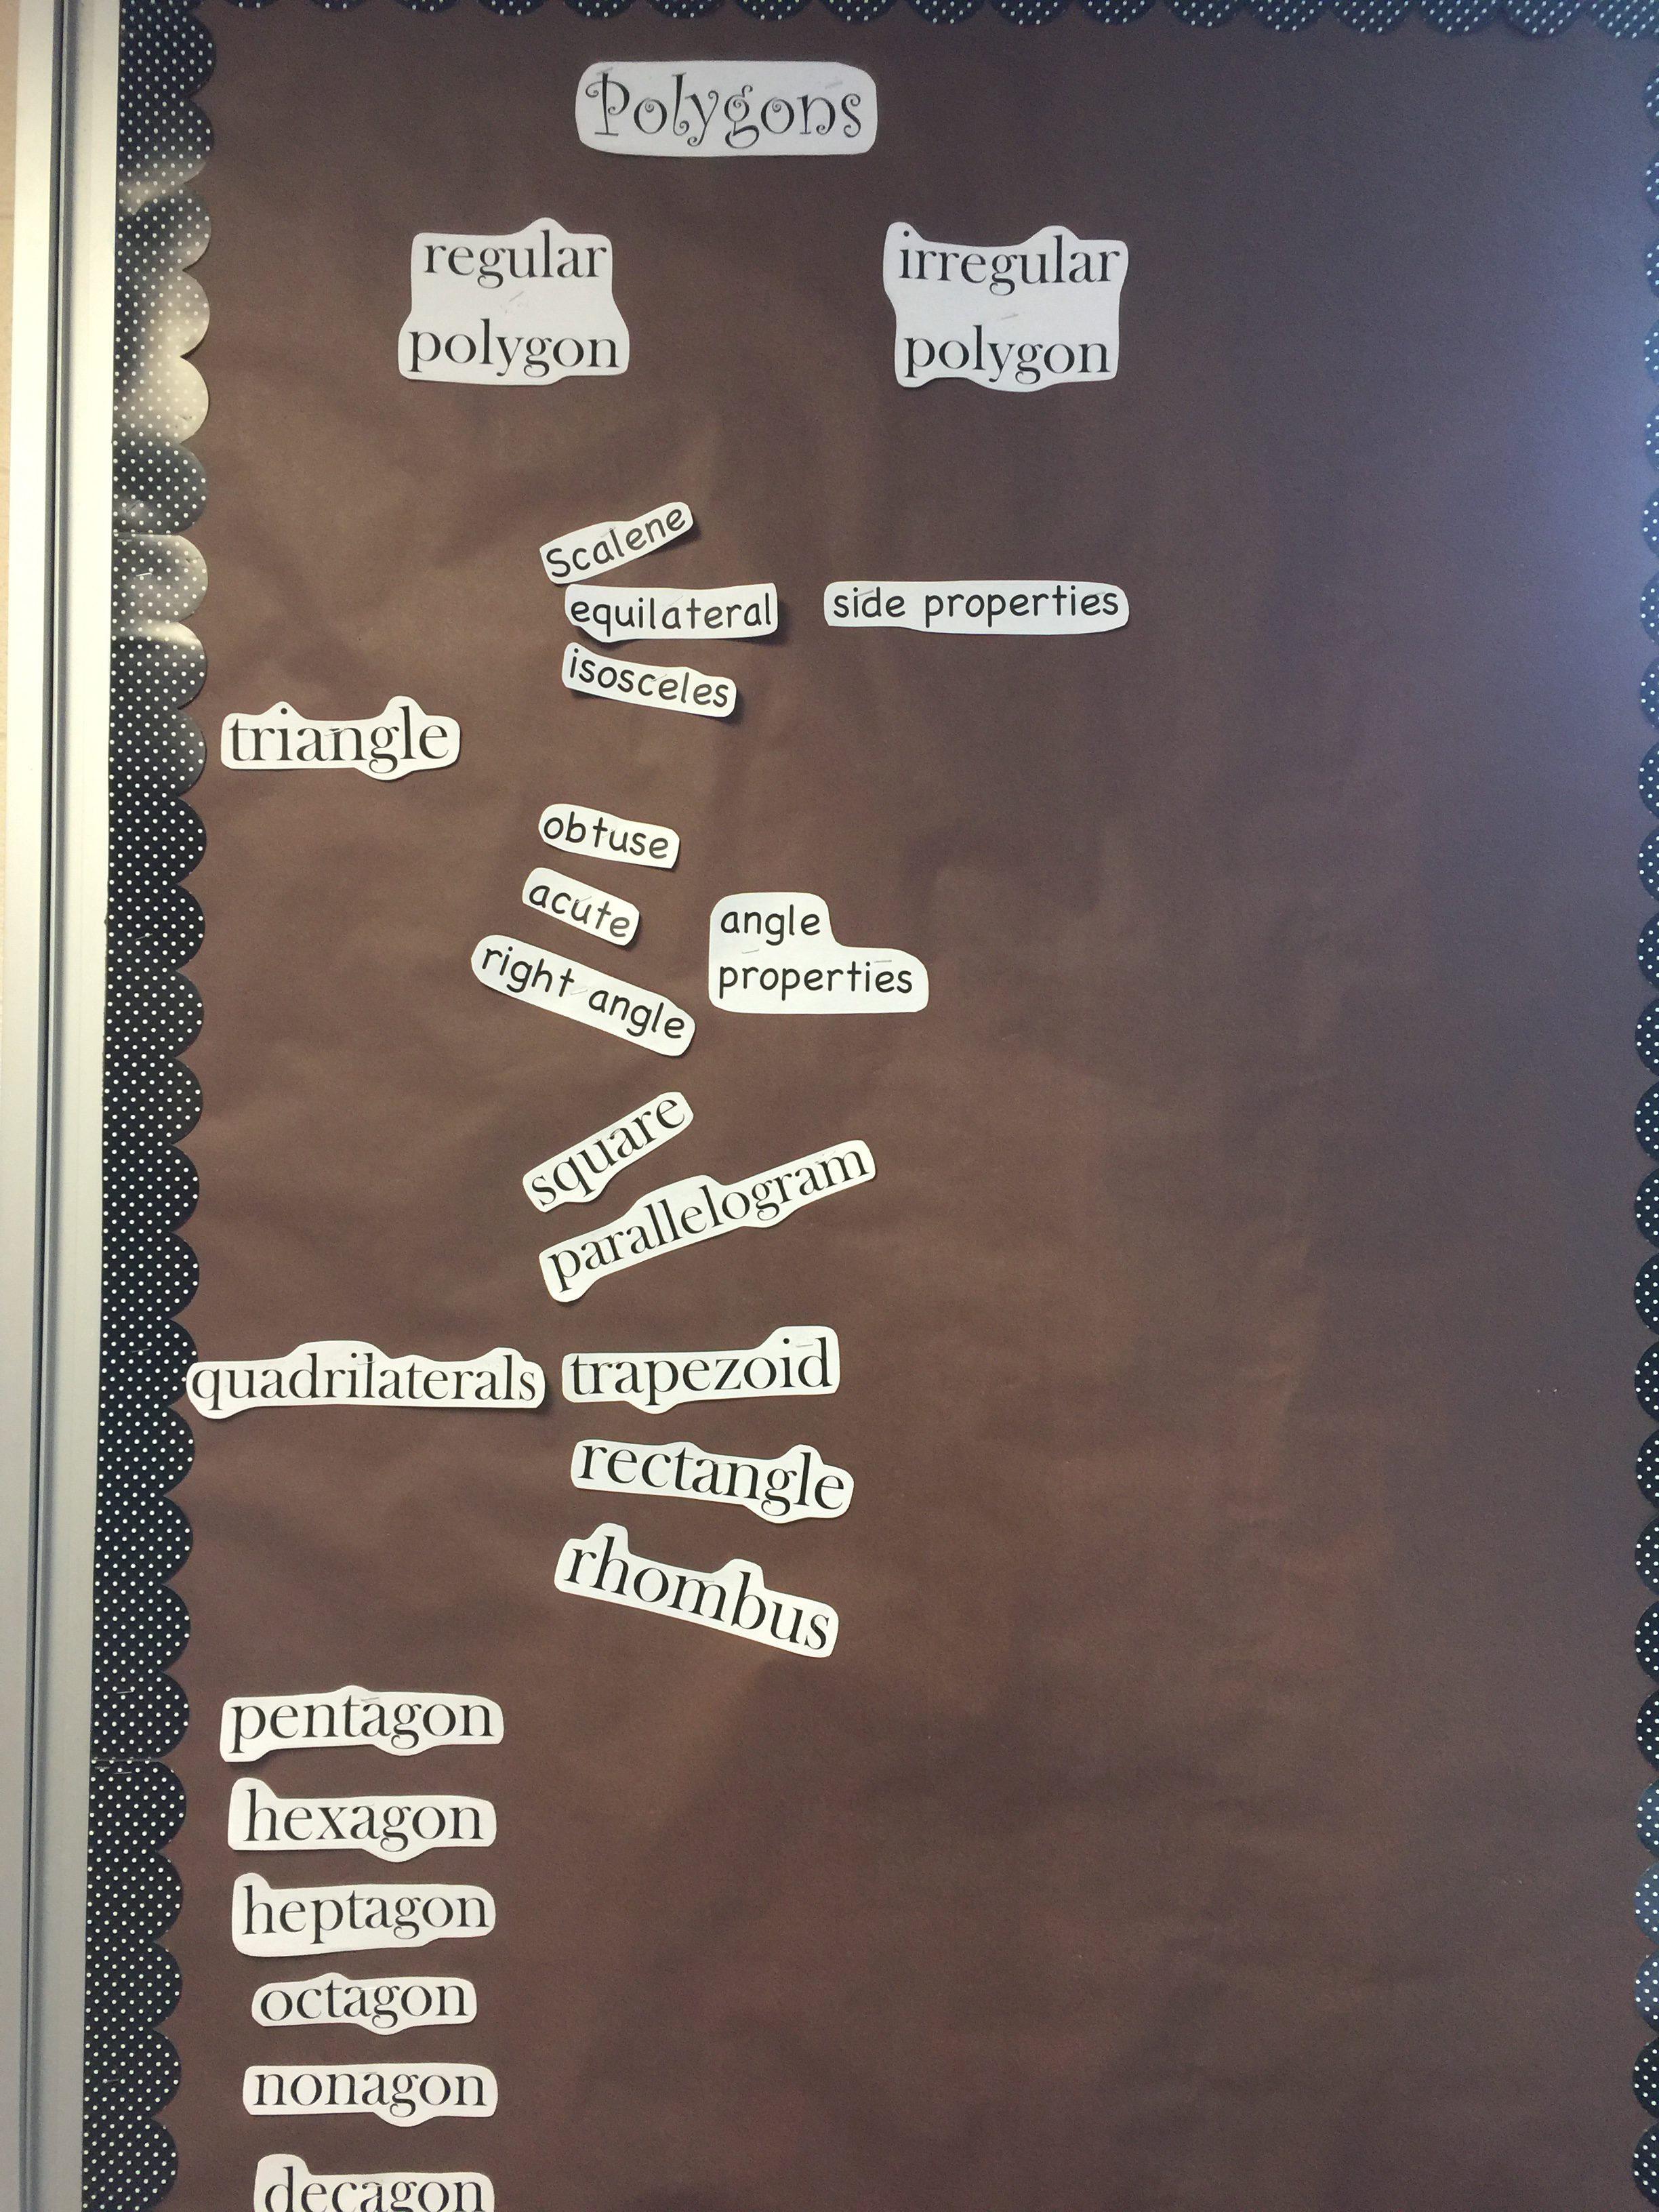 Polygons
regular
polygon
irregular
polygon
Scalene
equilateral
isosceles
side properties
triangle
obtuse
acute
right angle
angle
properties
square
parallelogram
quadrilaterals
trapezoid
rectangle
rhombus
pentagon
hexagon
heptagon
octagon
nonagon
decagon